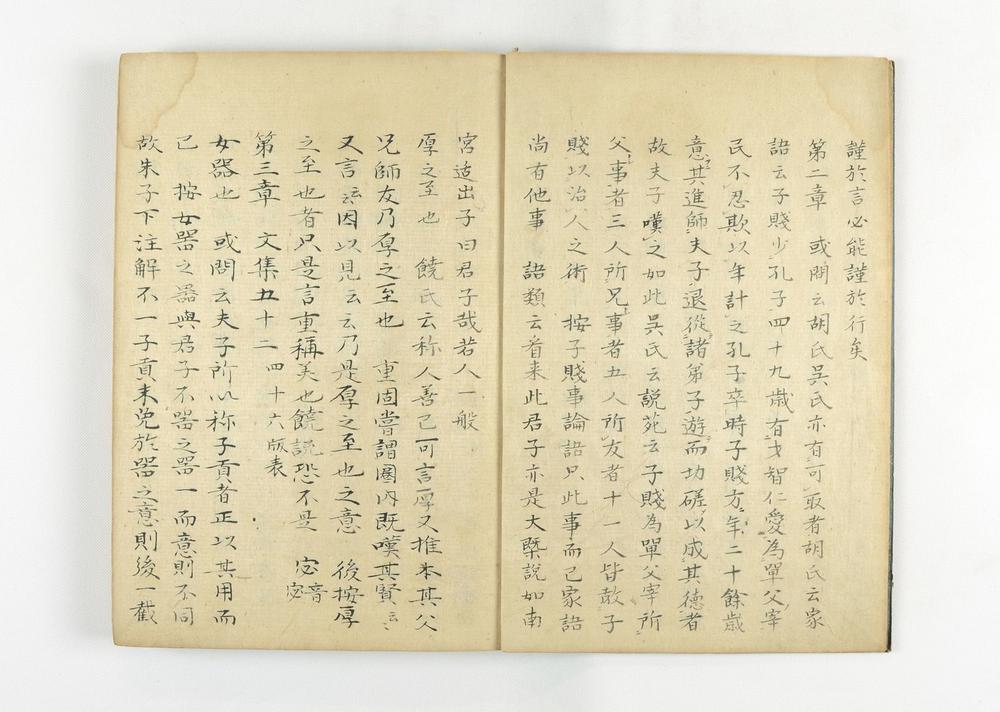 謹於言必能謹於行矣
第二章　或問云胡氏吳氏亦有可取者胡氏云家
語云子賤少孔子四十九歲有才智仁愛為單父宰
民不忍欺以年計之孔子卒時子賤方年二十餘歲
意其進師夫子退從諸弟子遊而切磋以成其德者
故夫子嘆之如此吳氏云說苑云子賤為單父宰所
父事者三人所兄事者五人所友者十一人皆敎子
賤以治人之術　按子賤事論語只此事而已家語
尚有他事　語類云看来此君子亦是大槩說如南
宮适出子曰君子哉若人一般
厚之至也　饒氏云称人善已可言厚又推本其父
兄師友乃厚之至也　重固嘗謂圏内既嘆其賢云
又言云因以見云云乃是厚之至也之意　後按厚
之至也者只是言重稱美也饒說恐不是　宓音密
第三章　文集五十二　四十六版表
女器也　或問云夫子所以称子貢者正以其用而
已　按女器之器與君子不器之器一而意則不同
故朱子下注解不一子貢未免於器之意則後一截